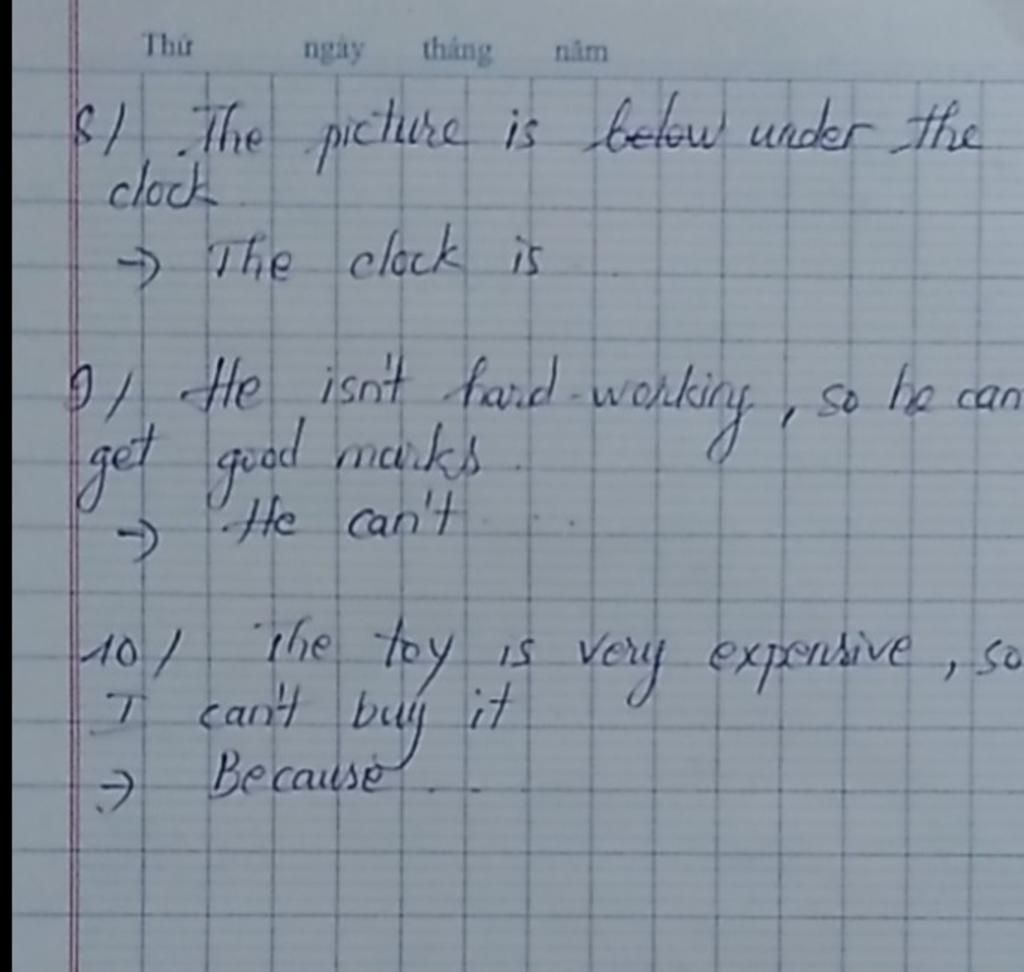 Thứ ngày tháng năm
8/ The picture is below under the
clock
→ The clock is
9/ He isn't hard-working, so he can
get good marks.
→ He can't ...
10/ The toy is very expensive, so
I can't buy it
→ Because ...